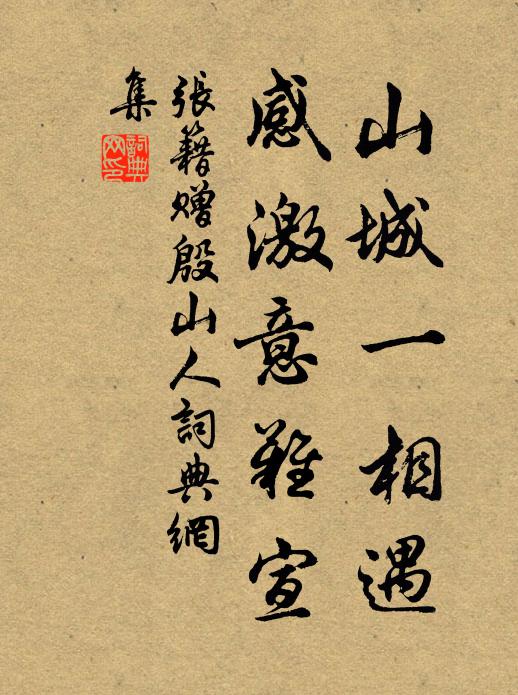 山城一相遇
感激意難宣
張籍贈殷山人詞典網
集
詞典
网印